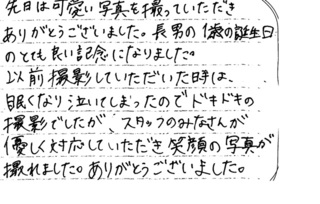 先日は可愛い写真を撮っていただき
ありがとうございました。長男の1歳の誕生日
のとても良い記念になりました。
以前撮影していただいた時は、
眠くなり泣いてしまったのでドキドキの
撮影でしたが、スタッフのみなさんが
優しく対応していただき笑顔の写真が
撮れました。ありがとうございました。